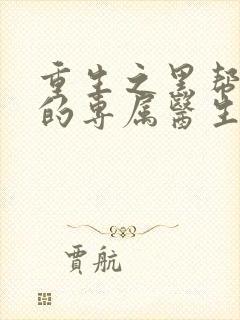 重生之黑帮
的专属医生
贾航